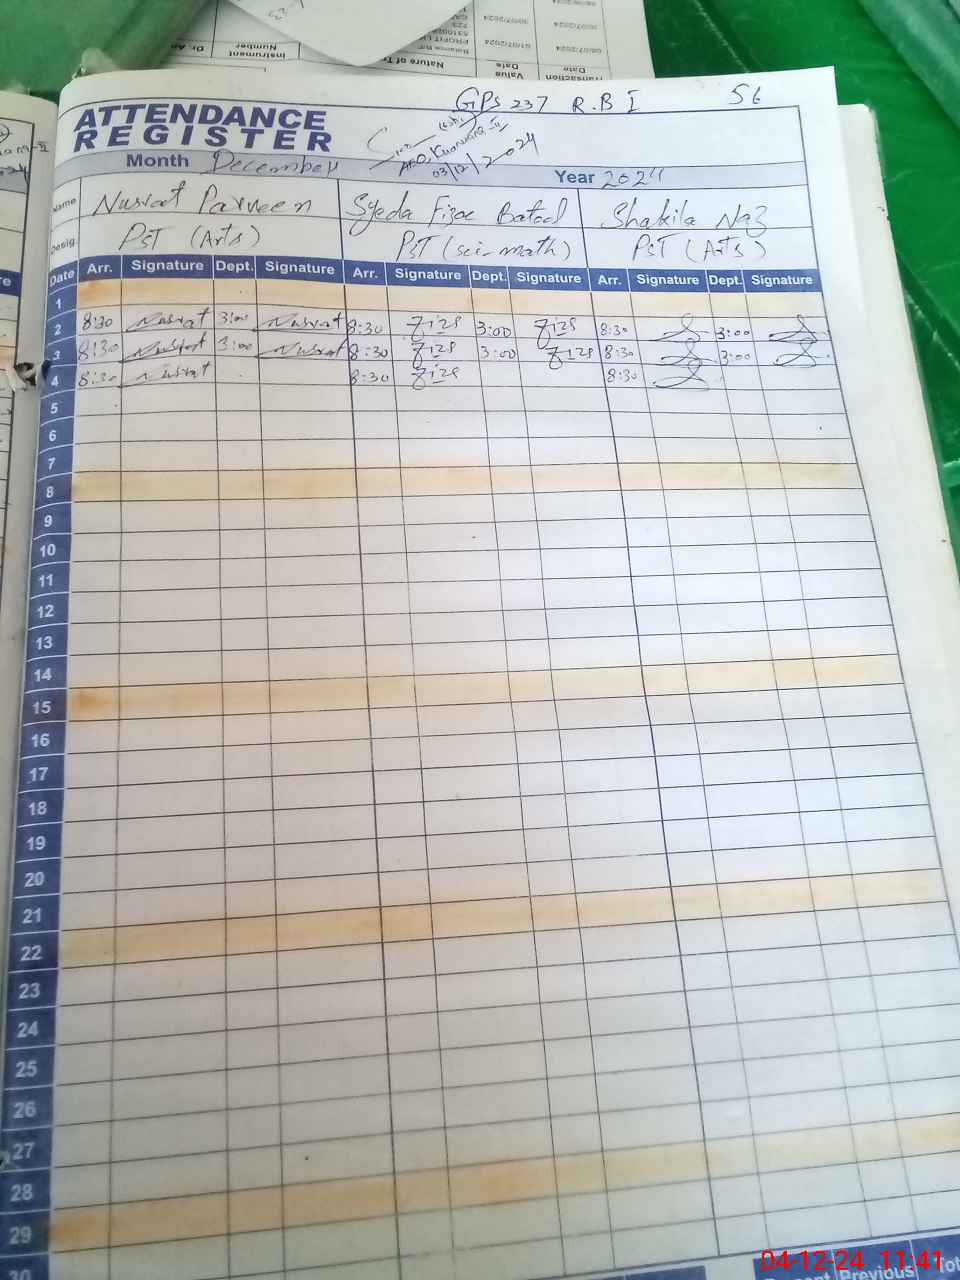 Transaction Date
Value Date
Nature of
Instrument Number
06/07/2024
01/07/2024
30/07/2024
GPS 237 R.B I 56
ATTENDANCE
REGISTER
03/12/2024
Month December Year 2024
Name Nusrat Parveen Syeda Fizac Batool Shakila Naz
Desig. PST (Arts) PST (sci-math) PST (Arts)
Date Arr. Signature Dept. Signature Arr. Signature Dept. Signature Arr. Signature Dept. Signature
1
2 8:30 Nusrat 3:00 Nusrat 8:30 3:00 8:30 3:00
3 8:30 Nusrat 3:00 Nusrat 8:30 3:00 8:30 3:00
4 8:30 Nusrat 8:30 8:30
5
6
7
8
9
10
11
12
13
14
15
16
17
18
19
20
21
22
23
24
25
26
27
28
29
30
Previous
04-12-24 11:41